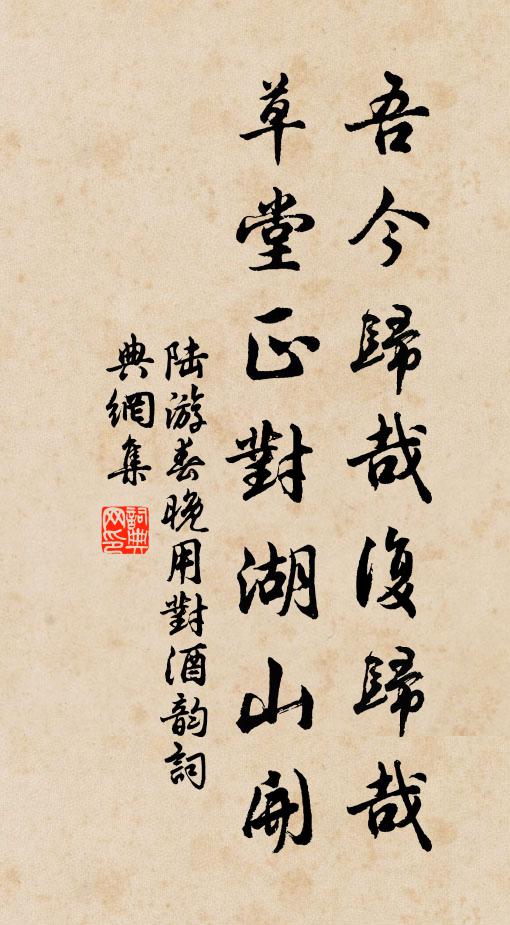 吾今歸哉復歸哉
草堂正對湖山開
陆游春晚用對酒韵詞
典網集
詞典網印